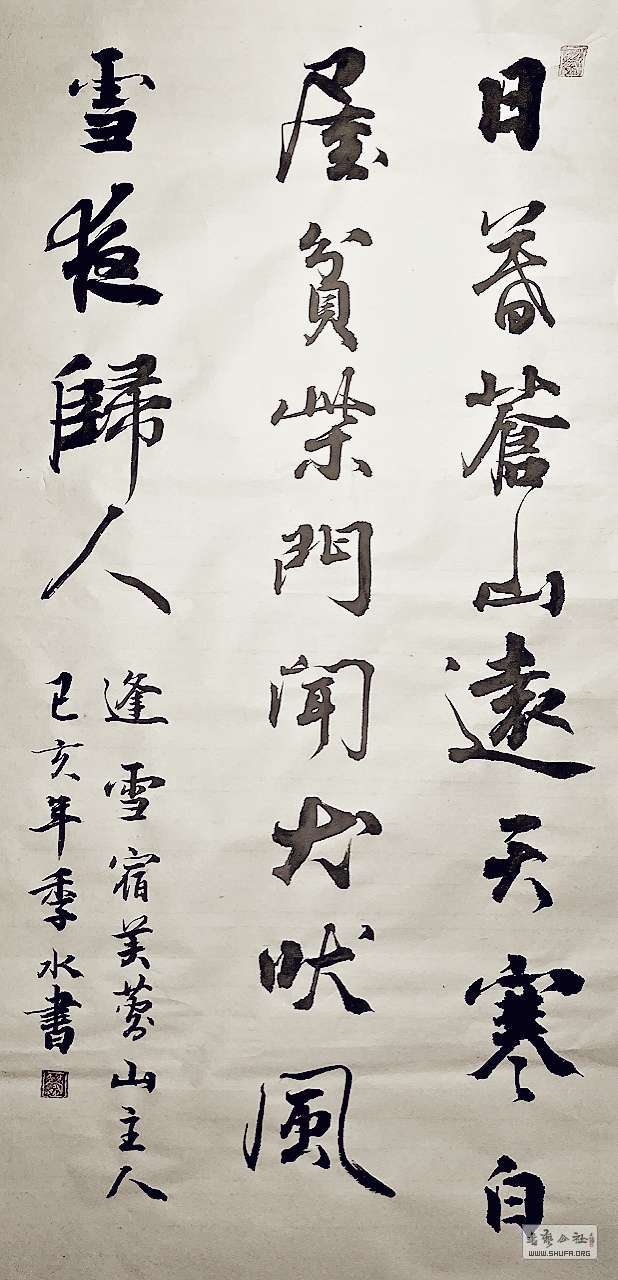 日暮蒼山遠天寒白
屋貧柴門聞犬吠風
雪夜歸人
逢雪宿芙蓉山主人
己亥年季水書
書藝公社
WWW.SHUFA.ORG